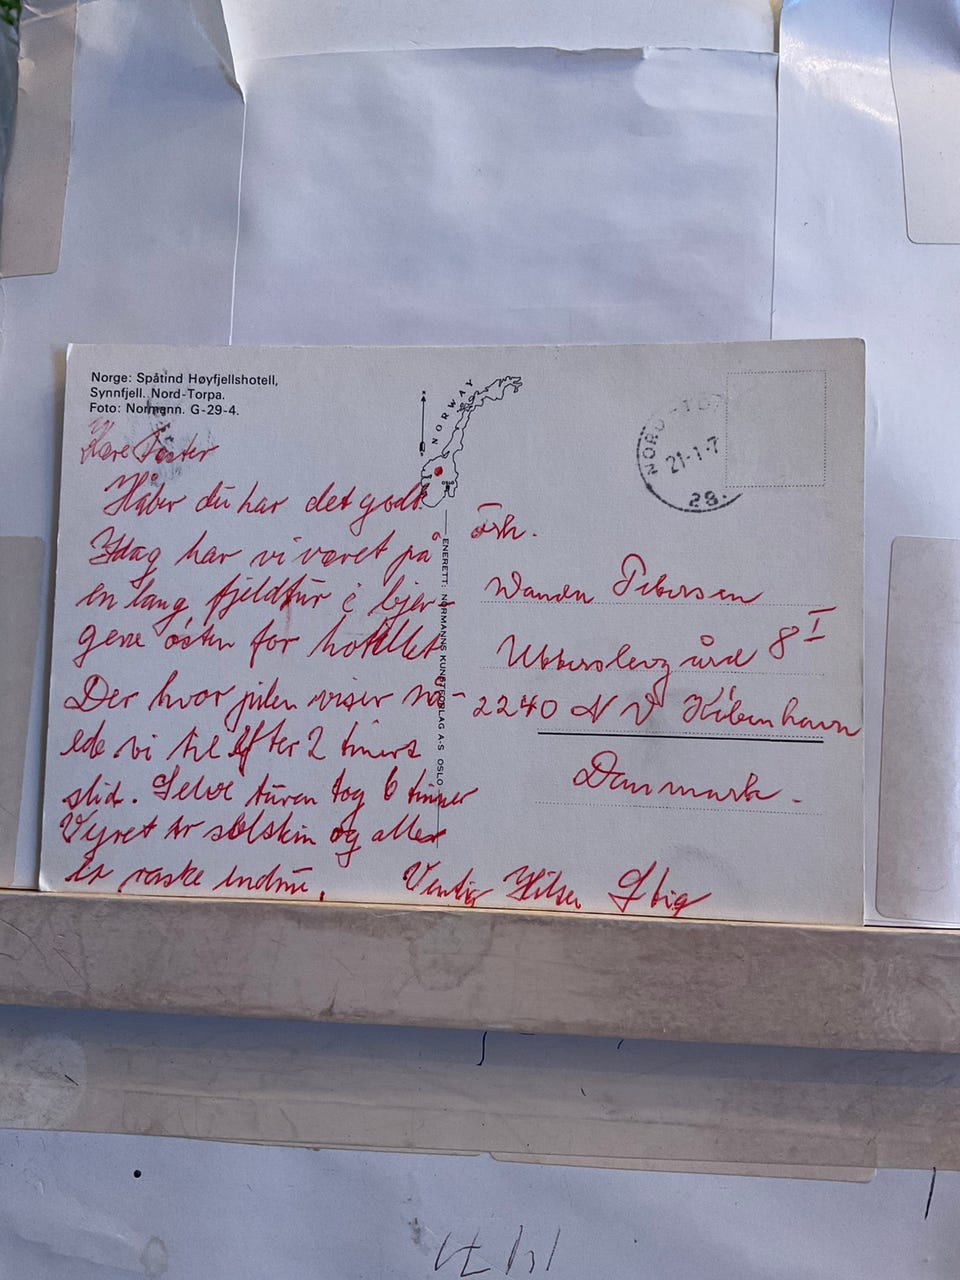 Norge: Spåtind Høyfjellshotell,
Synnfjell. Nord-Torpa.
Foto: Normann. G-29-4.
NORWAY
OSLO
21-1-7
28.
ENERETT: NORMANNS KUNSTFORLAG A-S OSLO
Kære Foster
Håber du har det godt.
Idag har vi været på
en lang fjeldtur i bjer-
gene østen for hotellet
Der hvor pilen viser nå-
ede vi til efter 2 timers
slid. Selve turen tog 6 timer
Vejret er solskin og alle
er raske endnu.
Venlig Hilsen Stig
Frk.
Wanda Petersen
Ubberslevgård 8 I
2240 NV København
Danmark.